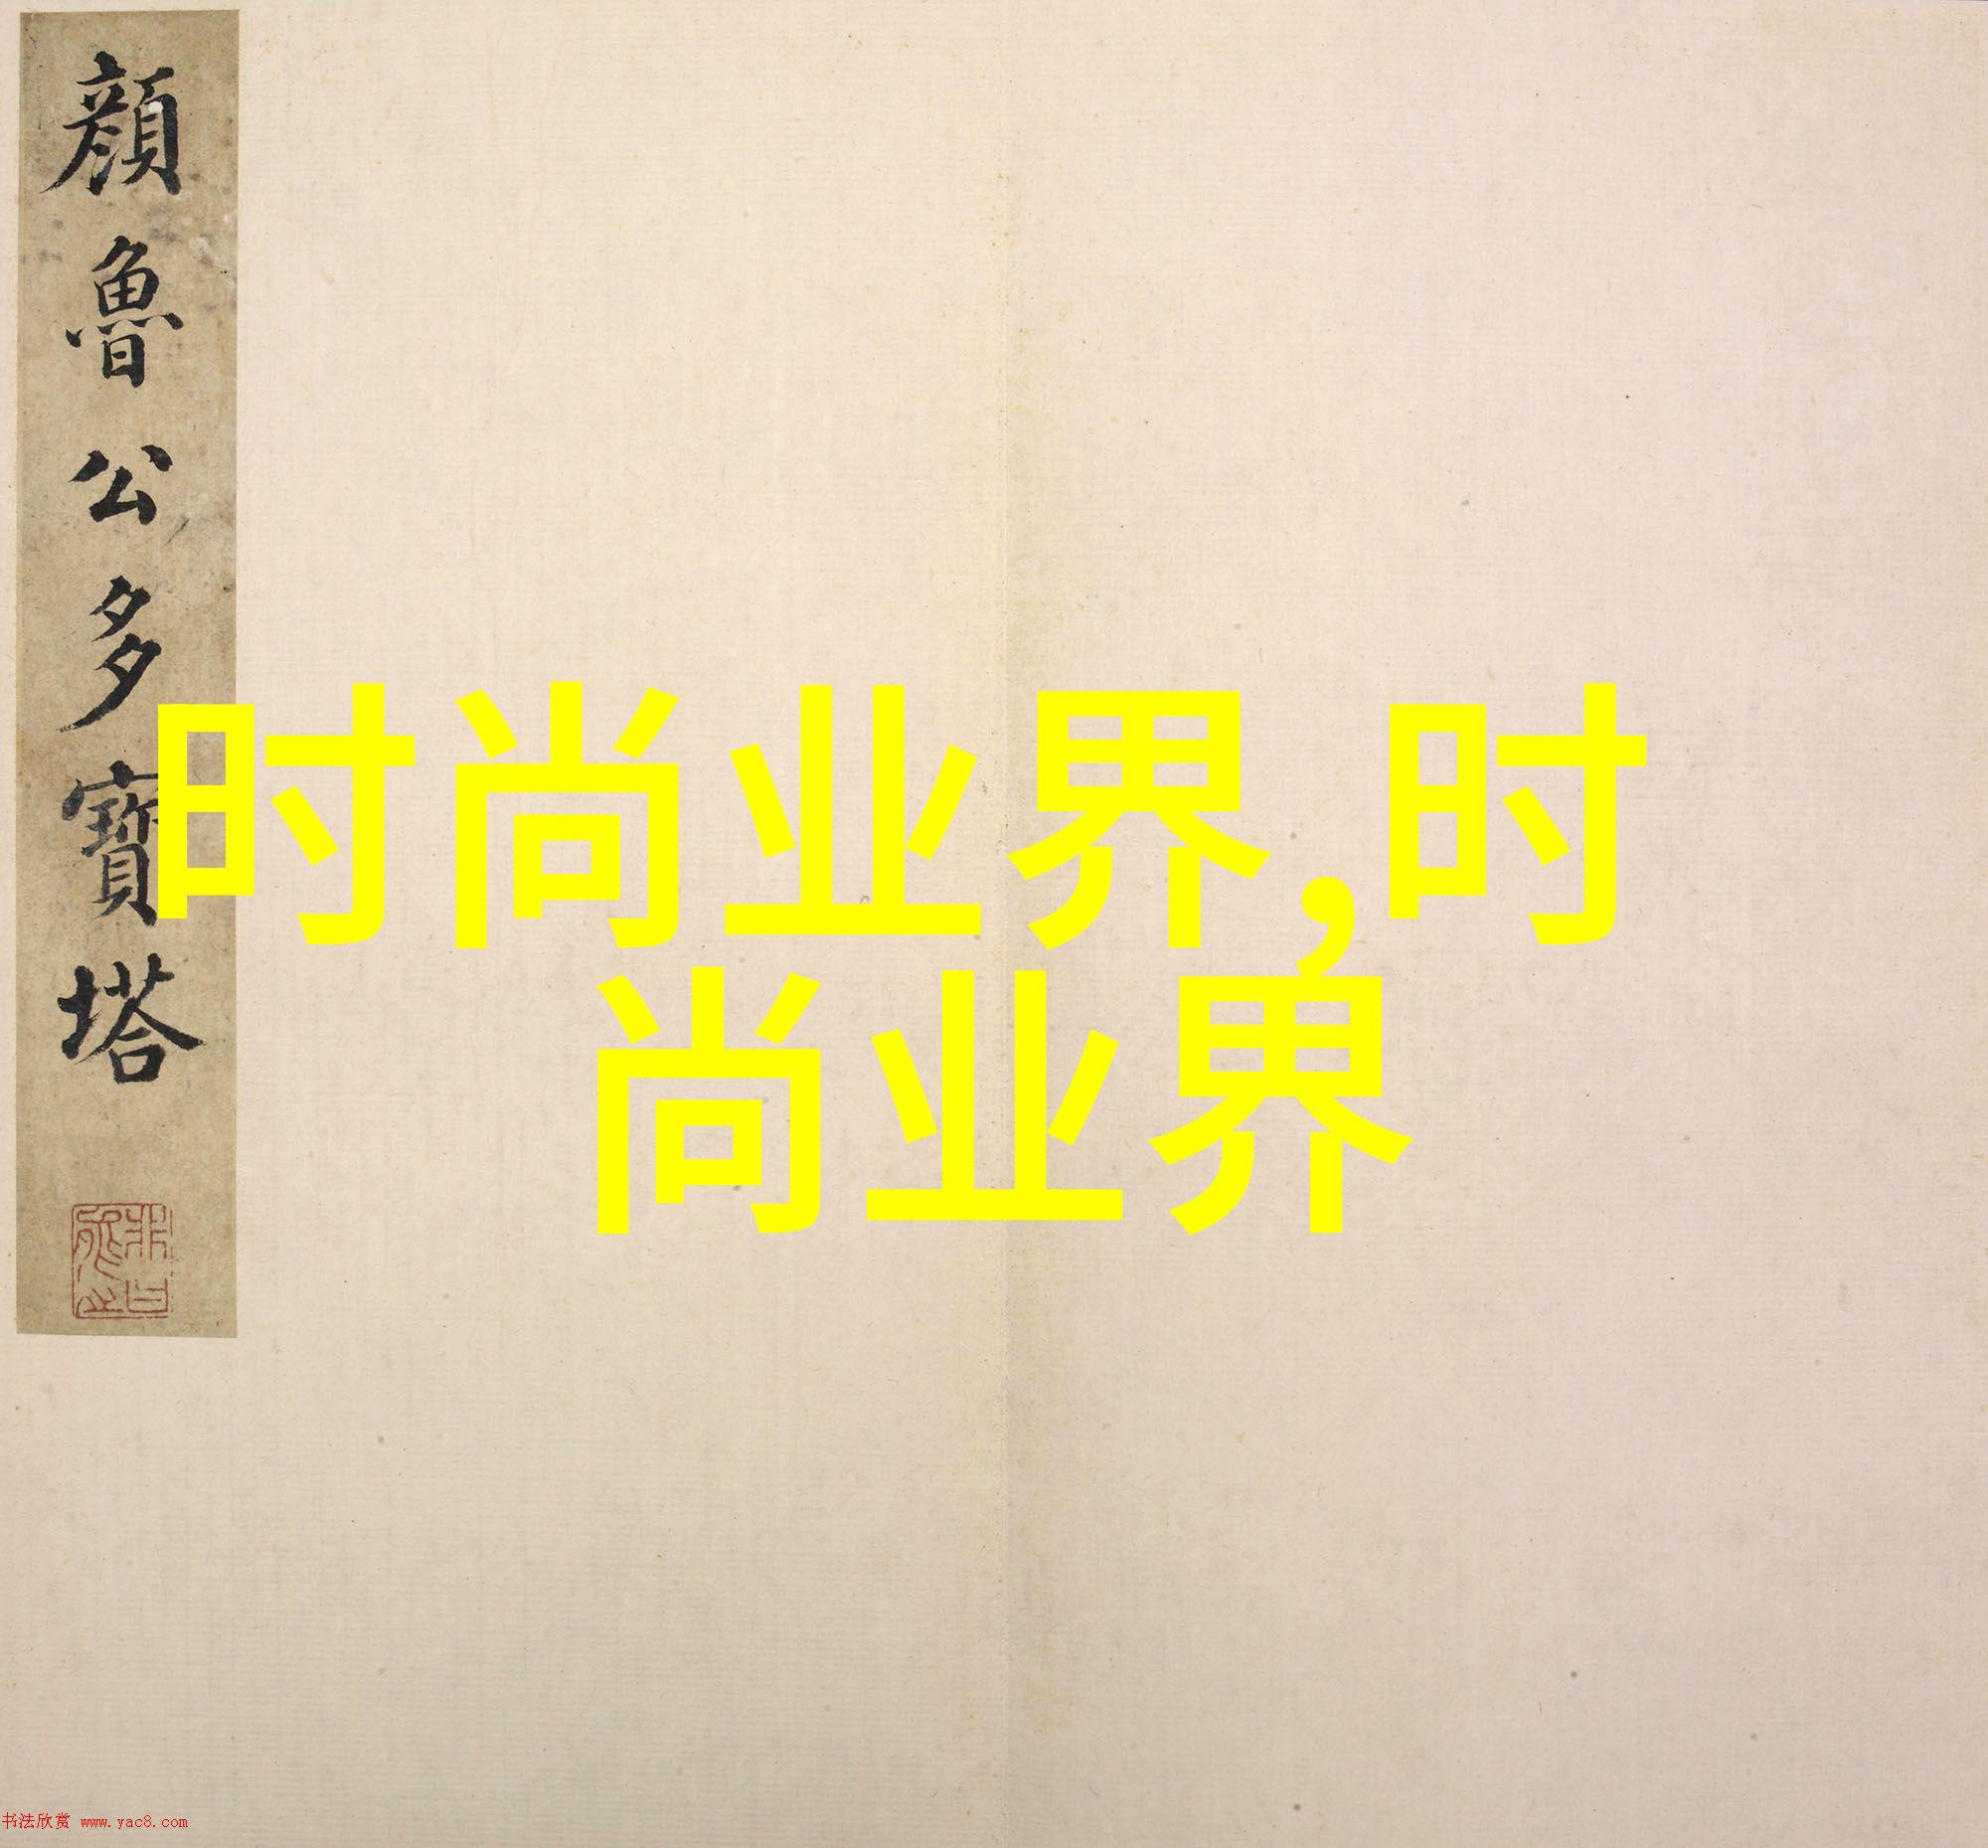 顏魯公多寶塔
时尚业界,时
尚业界
书法欣赏 www.yac8.com